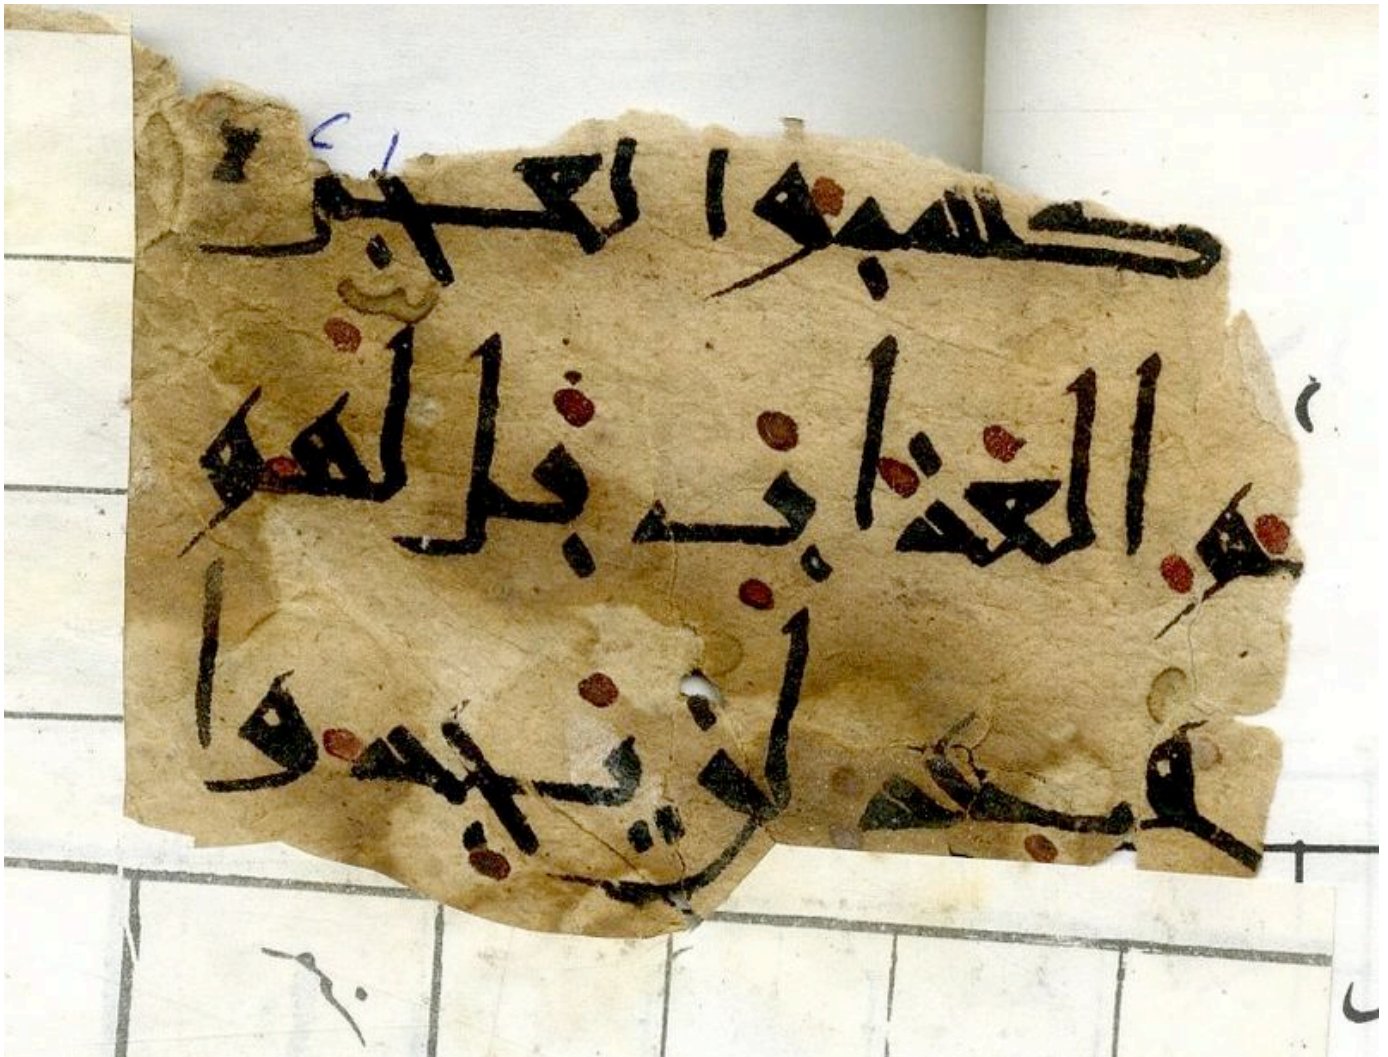 كسبوا لعجل
م العذاب بل لهم
موعد لن يجدوا